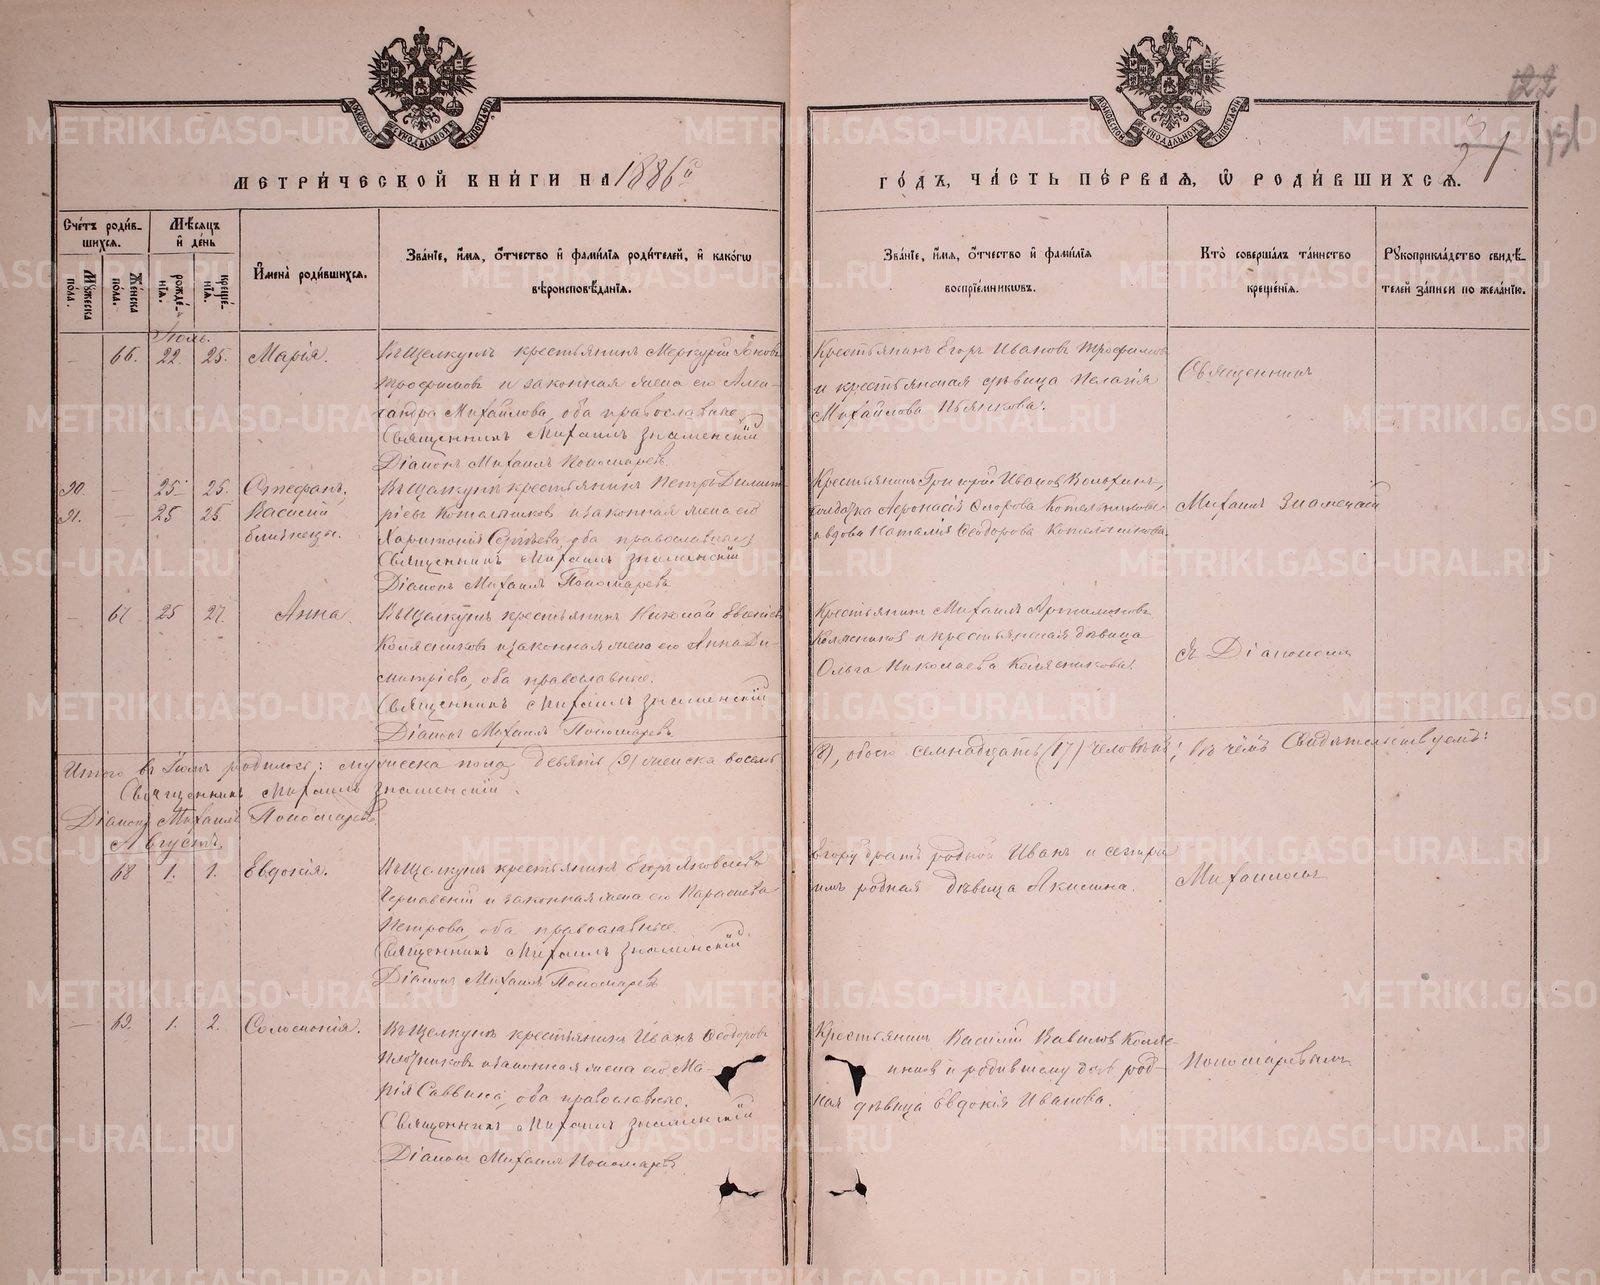 МЕТРИ́ЧЕСКОЙ КНИ́ГИ НА 1886й
ГО́ДЪ, ЧА́СТЬ ПЕ́РВАЯ, Ѡ РОДИ́ВШИХСѦ.
122
Сче́тъ роди́в-
шихсѧ.
Мѣсѧцъ
и҆ де́нь
Мꙋжеска по́ла.
Же́нска пола.
рожде́нїѧ.
креще́нїѧ.
И҆мена̀ роди́вшихсѧ.
Зва́нїе, и҆́мѧ, ѻ҆́тчество и҆ фами́лїѧ роди́телей, и҆ како́гѡ
вѣроисповѣ́данїѧ.
Зва́нїе, и҆́мѧ, ѻ҆́тчество и҆ фами́лїѧ
воспрїе́мникѡвъ.
Кто̀ соверша́лъ та́инство
креще́нїѧ.
Рꙋкоприкла́дство свидѣ́-
телей за́писи по жела́нїю.
Іюль.
— 66. 22. 25. Марія.
Въ Щелкунѣ крестьянинъ Меркурій Яковъ
Трофимовъ и законная жена его Алек-
сандра Михайлова, оба православные.
Священникъ Михаилъ Знаменскій
Діаконъ Михаилъ Пономаревъ
Крестьянинъ Егоръ Ивановъ Трофимовъ
и крестьянская дѣвица Пелагія
Михайлова Пьянкова.
Священникъ
30. — 25 25. Стефанъ,
31. — 25 25. Василій
близнецы.
Въ Щелкунѣ крестьянинъ Петръ Димит-
ріевъ Котельниковъ и законная жена его
Харитонія Сергѣева, оба православные
Священникъ Михаилъ Знаменскій
Діаконъ Михаилъ Пономаревъ
Крестьянинъ Григорій Ивановъ
солдатка Котельникова
и вдова Наталія Ѳеодорова Котельникова.
Михаилъ Знаменскій
— 67 25 27. Анна.
Въ Щелкунѣ крестьянинъ Николай
Колясниковъ и законная жена его Анна Ди-
митріева, оба православные.
Священникъ Михаилъ Знаменскій
Діаконъ Михаилъ Пономаревъ
Крестьянинъ Михаилъ Артамоновъ
Колясниковъ и крестьянская дѣвица
Ольга Николаева Колясникова.
съ Діакономъ
Итого въ Іюлѣ родилось: мужеска пола девять (9) женска восемь
(8), обоего семнадцать (17) человѣкъ; въ чемъ Свидѣтельствуемъ:
Священникъ Михаилъ Знаменскій.
Діаконъ Михаилъ Пономаревъ
Августъ.
68 1. 1. Евдокія.
Въ Щелкунѣ крестьянинъ Егоръ Яковлевъ
Чернавскій и законная жена его Параскева
Петрова, оба православные.
Священникъ Михаилъ Знаменскій
Діаконъ Михаилъ Пономаревъ
Егору братъ родной Иванъ и сестра
имъ родная дѣвица Акилина.
Михаиломъ
— 69. 1. 2. Соломонія.
Въ Щелкунѣ крестьянинъ Иванъ Ѳеодоровъ
Плотниковъ и законная жена его Ма-
рія Саввина, оба православные.
Священникъ Михаилъ Знаменскій
Діаконъ Михаилъ Пономаревъ
Крестьянинъ Василій Вавиловъ Коляс-
никовъ и родившему дочь род-
ная дѣвица Евдокія Иванова.
Пономаревымъ
METRIKI.GASO-URAL.RU